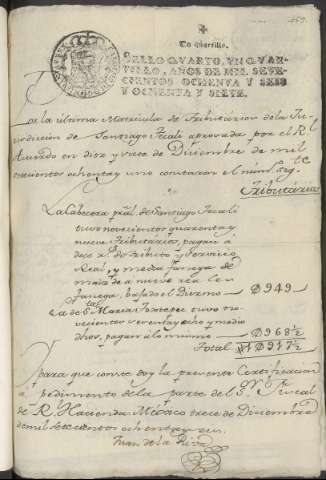 Un quartillo.
SELLO QVARTO, VN QVAR-
TILLO, AÑOS DE MIL SETE-
CIENTOS OCHENTA Y SEIS
Y OCHENTA Y SIETE.
Por la ultima Matricula de Tributarios de la Ju-
risdiccion de Santiago Tecali aprovada por el Rl
Acuerdo en diez y siete de Diciembre de mil
setecientos ochenta y uno constaron el num.o sig.te
Tributarios
La Cabecera pral. de Santiago Tecali
tuvo novecientos quarenta y
nueve Tributarios, pagan a
doce r.s de tributo y servicio
Real, y media fanega de
maiz de a nueve rea les
fanega, bajado el Diezmo — Ɖ949
La de S.ta Maria Ixtotepec tuvo no-
vecientos sesenta y ocho y medio
dhos, pagan a lo mismo — Ɖ968½
Total 1Ɖ917½
Y para que conste doy la presente Certificacion
a pedimento de la parte del S.or Fiscal
de Rl. Hacienda Mexico trece de Diciembre
de mil setecientos ochenta y seis.
Juan de la Riva